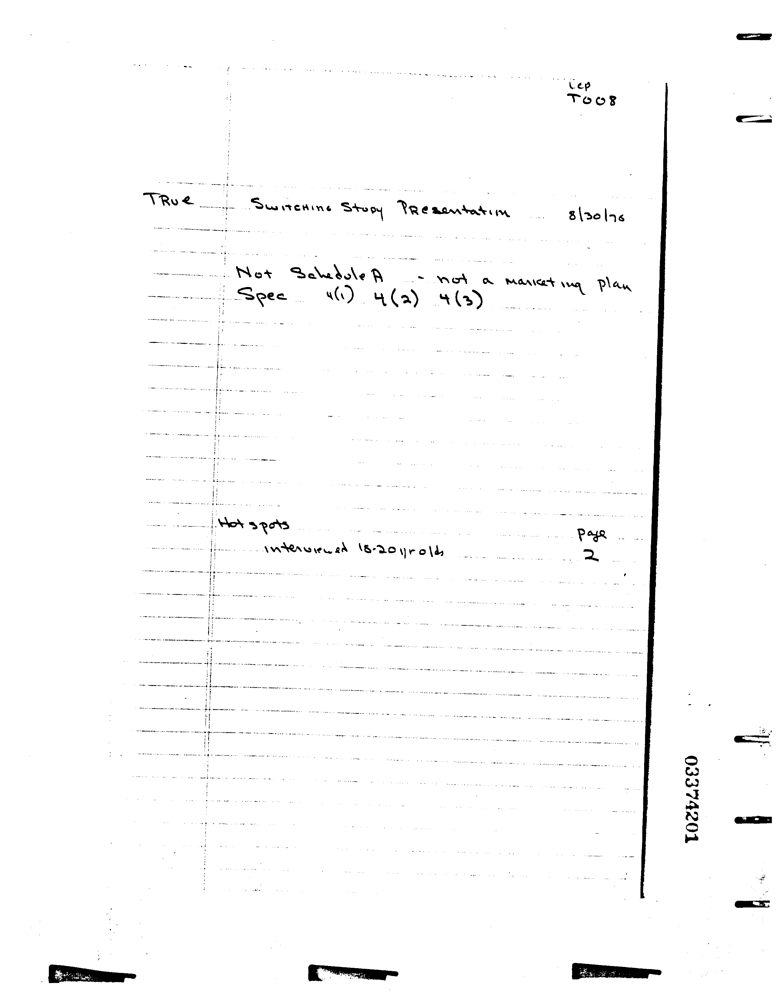 icp
T008
TRUE Switching Study Presentation 8/30/76
Not Schedule A - not a marketing plan
Spec 4(1) 4(2) 4(3)
Hot spots page
interviewed 18-20 yr olds 2
03374201